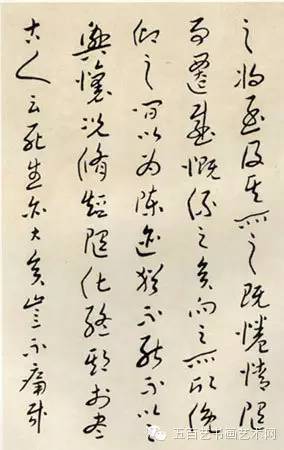 之將至及其所之既惓情隨
事遷感慨係之矣向之所欣俛
仰之間以為陳迹猶不能不以之
興懷況脩短隨化終期於盡
古人云死生亦大矣豈不痛哉
五百艺书画艺术网